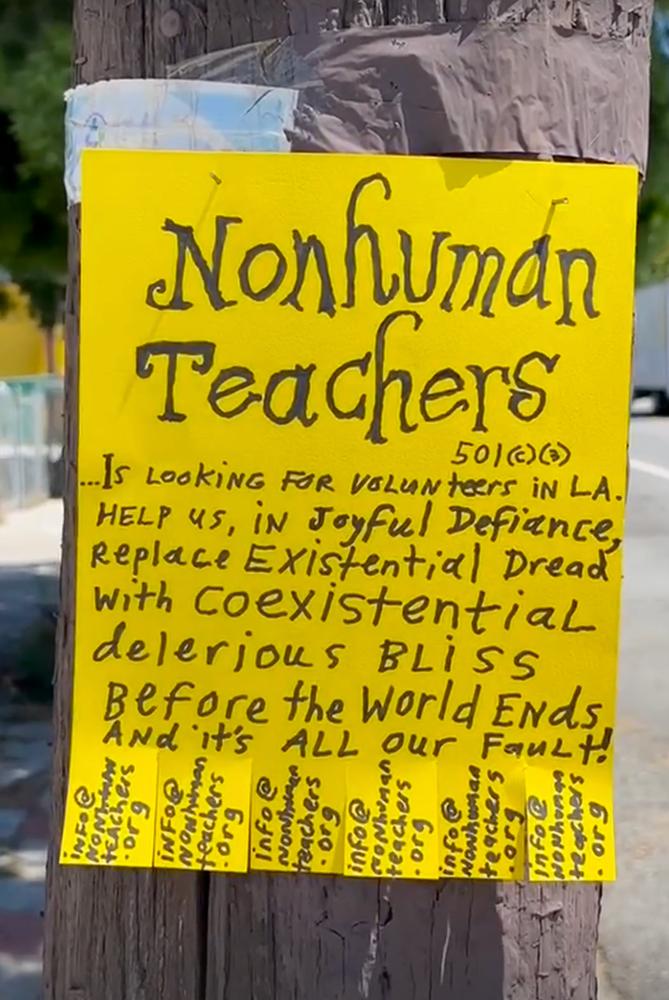 Nonhuman
Teachers
501(c)(3)
...Is LOOKING FOR VOLUNteers iN LA.
HELP US, iN Joyful Defiance,
Replace Existential Dread
with Coexistential
delerious BLiSS
Before the World ENds
ANd it's ALL our Fault!
iNFO@
NoNhuman
teachers
.org
iNFO@
Nonhuman
teachers
.org
info@
Nonhuman
teachers
.org
info@
nonhuman
teachers
.org
info@
Nonhuman
teachers
.org
info@
nonhuman
teachers
.org